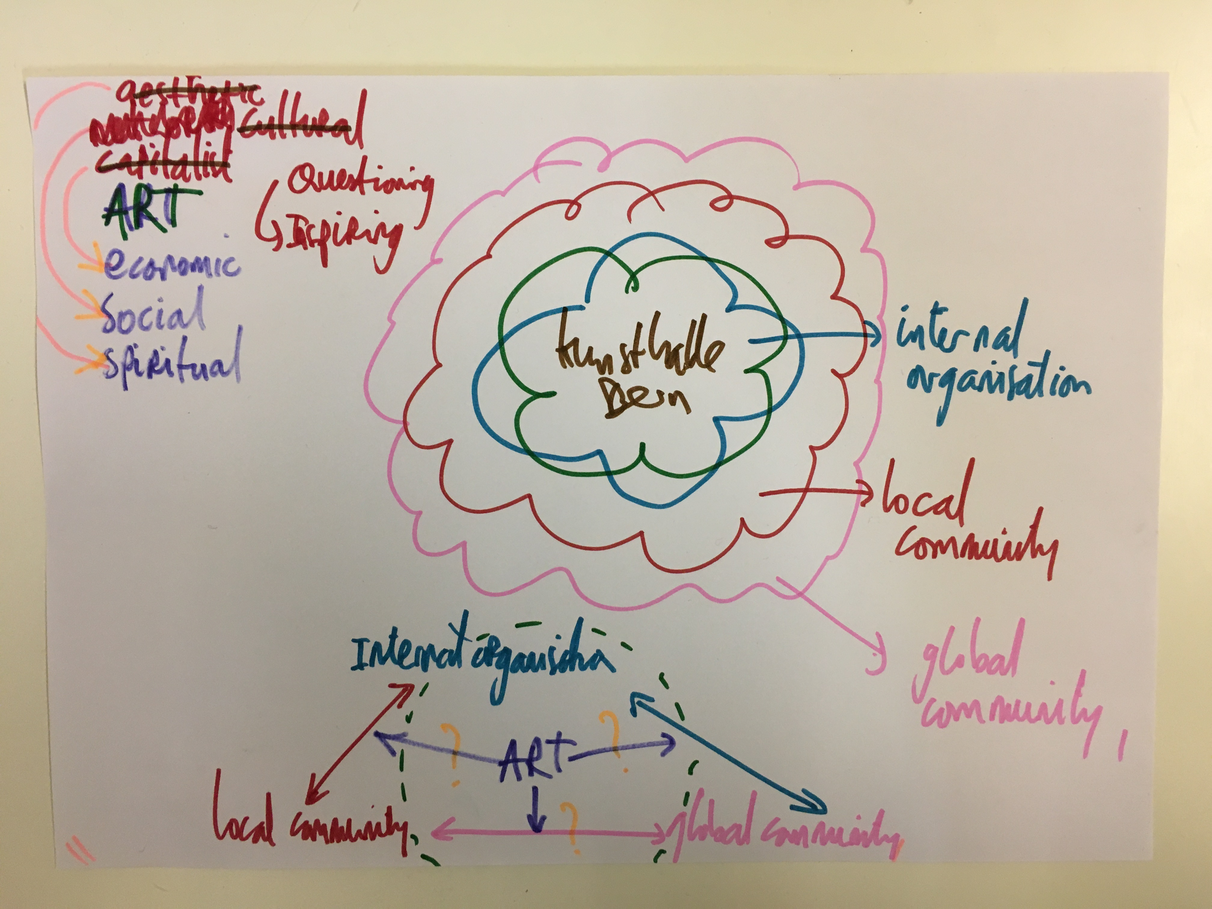 aesthetic
cultural
capitalist
ART
Questioning
Inspiring
economic
Social
Spiritual
kunsthalle
Bern
internal
organisation
local
community
global
community
Internal organisation
? ART ?
local community
?
global community